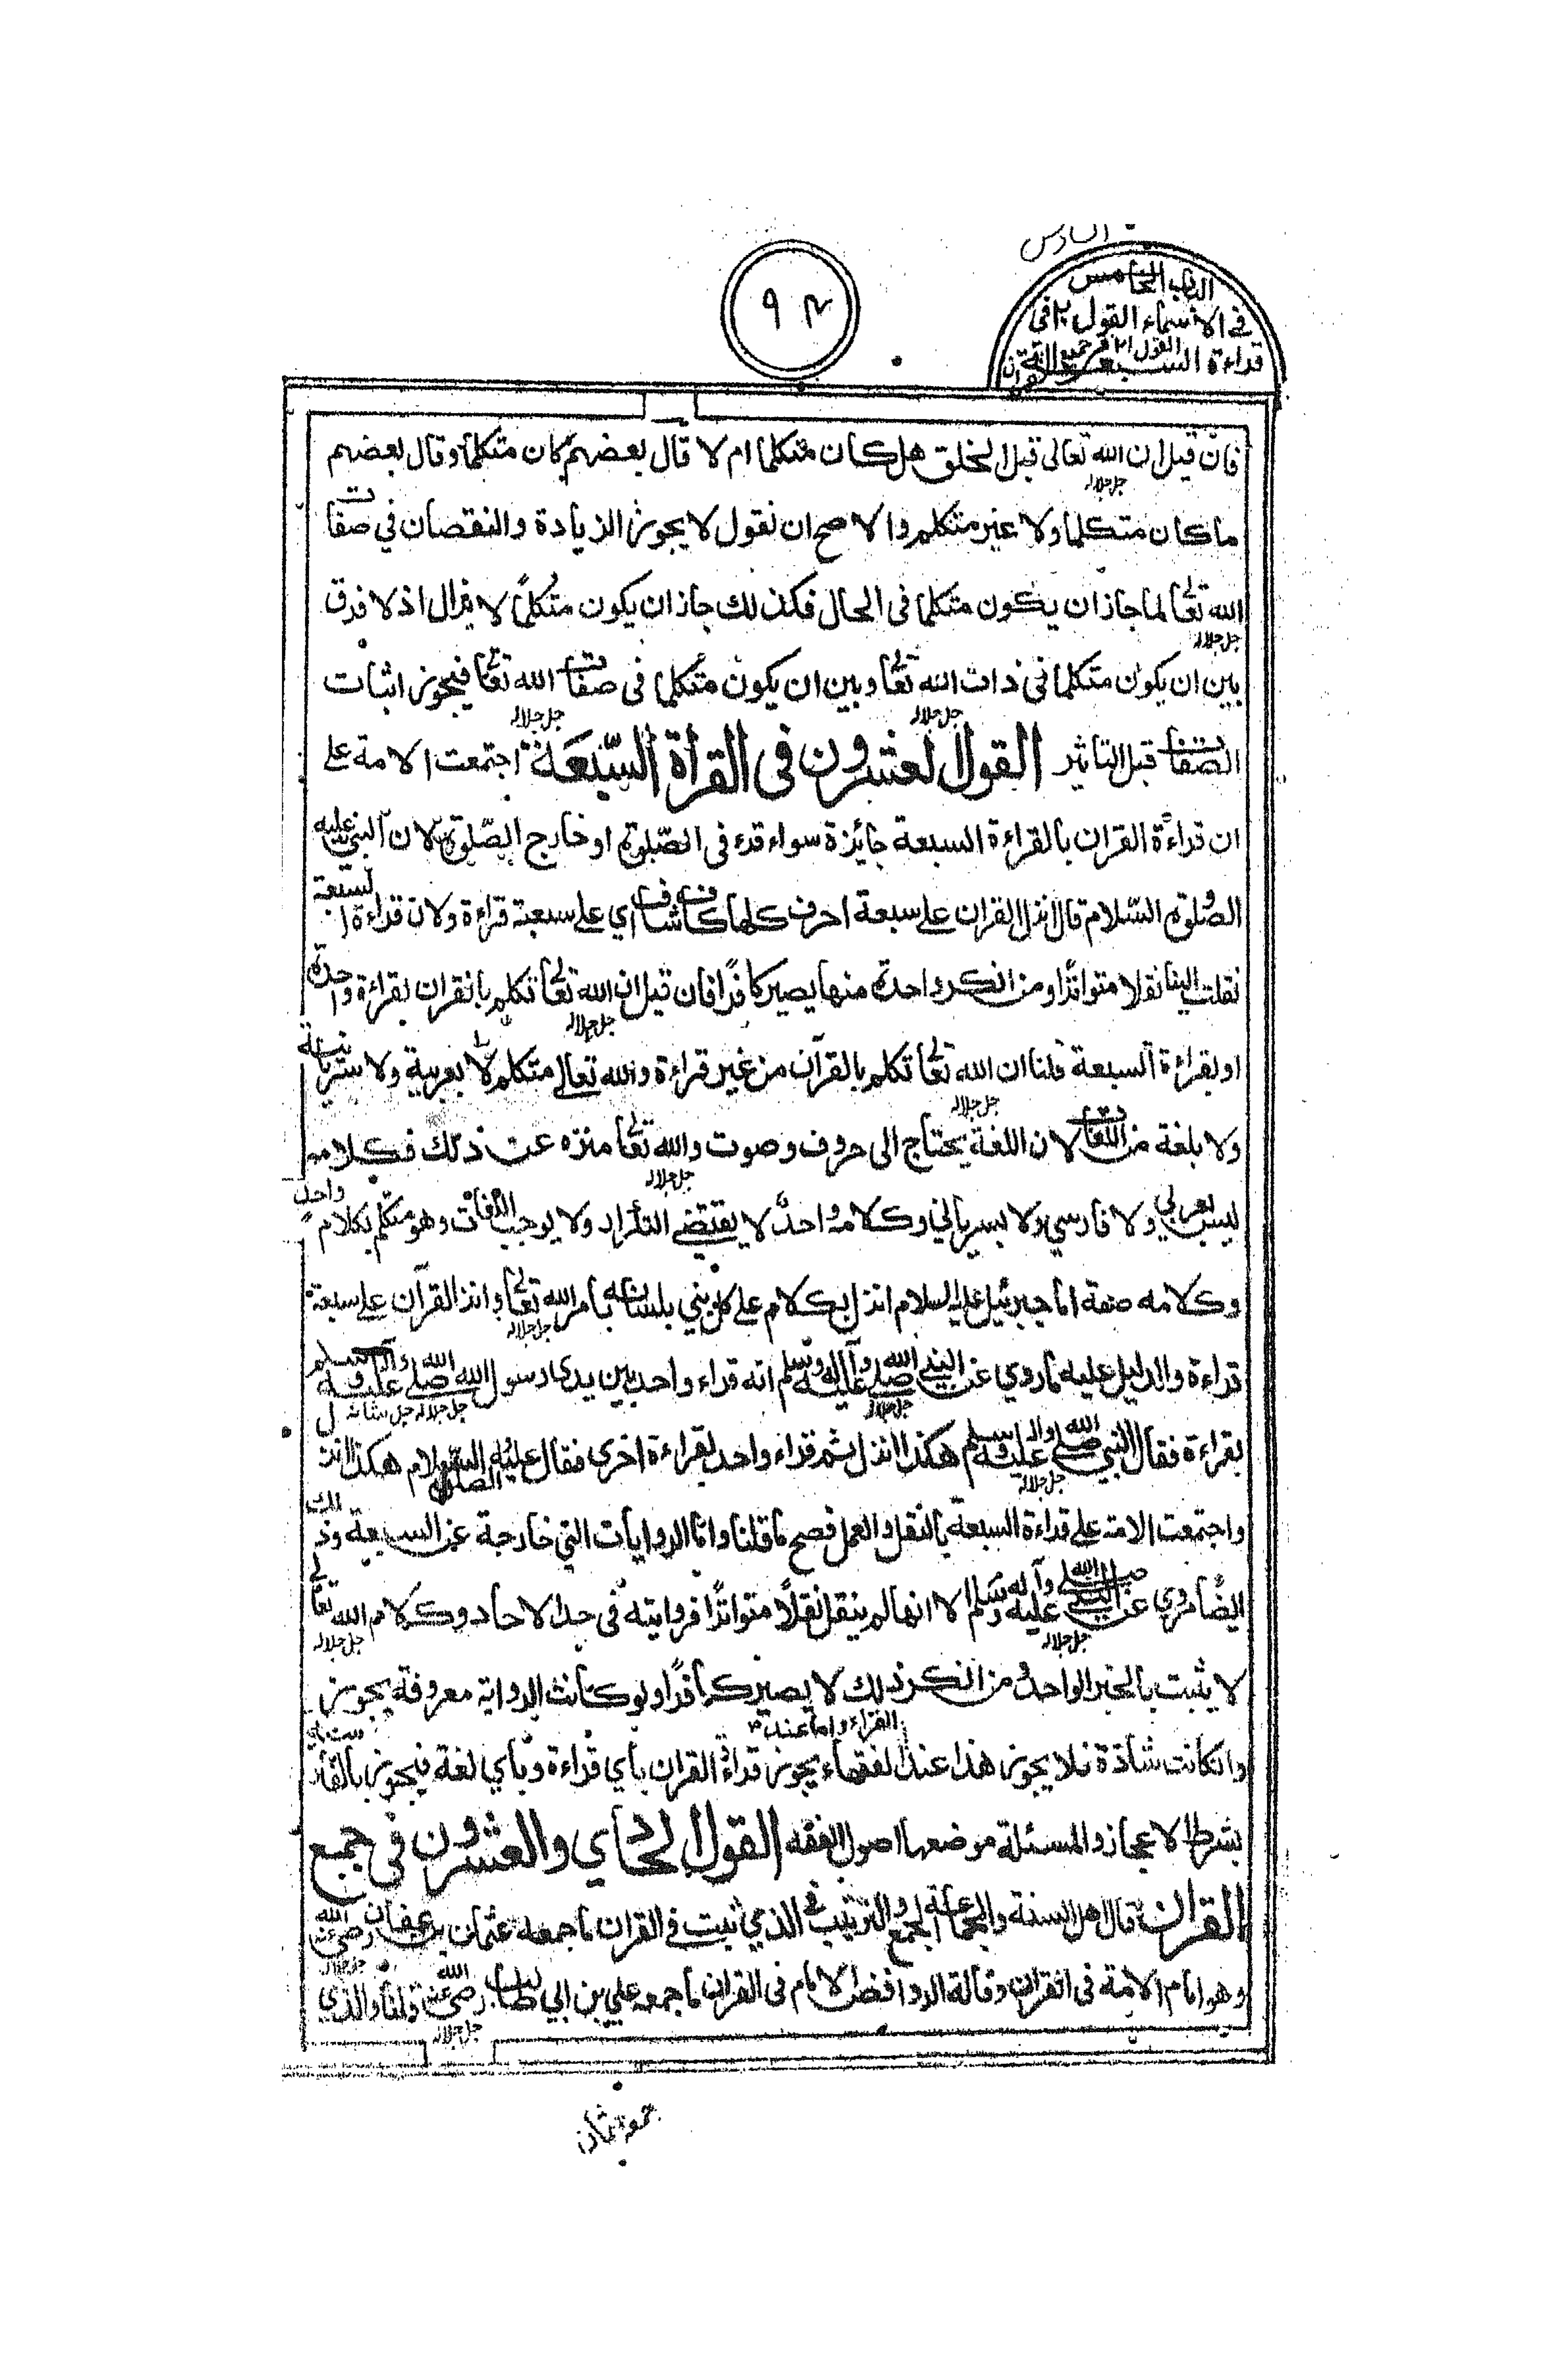 السادس
الباب الخامس
في الاسماء القول ٢٠ في
القول ٢١ في جميع القران
قراءة السبعة
٩٢
فان قيل ان الله تعالى قبل الخلق هل كان متكلما ام لا قال بعضهم كان متكلما وقال بعضهم
جل جلاله
ما كان متكلما ولا غير متكلم والاصح ان نقول لا يجوز الزيادة والنقصان في صفات
الله تعالى لما جاز ان يكون متكلما في الحال فكذلك جاز ان يكون متكلمًا لا يزال اذ لا فرق
جل جلاله
بين ان يكون متكلما في ذات الله تعالى وبين ان يكون متكلما في صفات الله تعالى فيجوز اثبات
جل جلاله جل جلاله
الصفات قبل التاثير القول العشرون في القرأة السّبعَة اجتمعت الامة على
ان قراءة القران بالقراءة السبعة جائزة سواء قرء في الصّلوة او خارج الصّلوة لان النبي عليه
الصلوة السّلام قال انزل القران على سبعة احرف كلها كاف شاف اي على سبعة قراءة ولان قراءة السبعة
نقلت الينا نقلا متواترًا ومن انكر واحدة منها يصير كافرًا فان قيل ان الله تعالى تكلم بالقران بقراءة واحدة
جل جلاله
او بقراءة السبعة قلنا ان الله تعالى تكلم بالقرآن من غير قراءة والله تعالى متكلم لا بعربية ولا سريانية
جل جلاله
ولا بلغة من اللغات لان اللغة يحتاج الى حروف وصوت والله تعالى منزه عن ذلك فكلامه
جل جلاله
ليس بعربي ولا فارسي ولا بسرياني وكلامه واحد لا يقتضي التكرار ولا يوجب اللغات وهو متكلم بكلام واحد
وكلامه صفة اما جبرئيل عليه السلام انزل بكلام على كل نبي بلسانه بامر الله تعالى وانزل القرآن على سبعة
جل جلاله
قراءة والدليل عليه ما روي عن النبي صلى الله عليه وآله وسلم انه قراء واحد بين يدى رسول الله صلى الله عليه وآله وسلم
جل جلاله جل جلاله جل شانه
بقراءة فقال النبي صلى الله عليه وآله وسلم هكذا انزل ثم قراء واحد بقراءة اخرى فقال عليه الصلوة السلام هكذا انزل
جل جلاله
واجتمعت الامة على قراءة السبعة بالنقل والعمل فصح ما قلنا واما الروايات التي خارجة عن السبعة وذلك
ايضًا مروي عن النبي صلى الله عليه وآله وسلم الا انها لم ينقل نقلًا متواترًا فروايته في حد الاحاد وكلام الله تعالى
جل جلاله جل جلاله
لا يثبت بالخبر الواحد ومن انكر ذلك لا يصير كافرًا ولو كانت الرواية معروفة يجوز
القراء واما عند
وان كانت شاذة فلا يجوز هذا عند الفقهاء يجوز قراءة القران باي قراءة وباي لغة فيجوز بالفارسية
بشرط الاعجاز والمسئلة موضعها اصول الفقه القول الحادي والعشرون في جميع
القران قال اهل السنة والجماعة الجمع والترتيب الذي ثبت في القران ما جمعه عثمان بن عفان رضي الله عنه
جل جلاله
وهو امام الامة في القران وقالة الروافض الامام في القران ما جمعه علي بن ابي طالب رضي الله عنه قلنا والذي
جل جلاله
جمعه عثمان